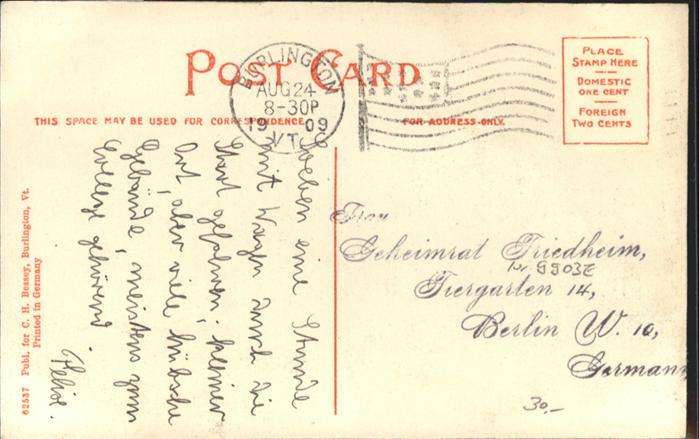 POST CARD
THIS SPACE MAY BE USED FOR CORRESPONDENCE
FOR ADDRESS ONLY.
PLACE
STAMP HERE
DOMESTIC
ONE CENT
FOREIGN
TWO CENTS
BURLINGTON
AUG 24
8-30P
1909
VT.
Soeben eine Stunde
mit Wagen durch die
Stadt gefahren, kleiner
Ort, aber viele hübsche
Gebäude, meistens zum
College gehörend.
Felix.
Frau
Geheimrat Friedheim,
Tiergarten 14,
Berlin W. 10,
Germany
30.-
62537 Publ. for C. H. Bessey, Burlington, Vt.
Printed in Germany